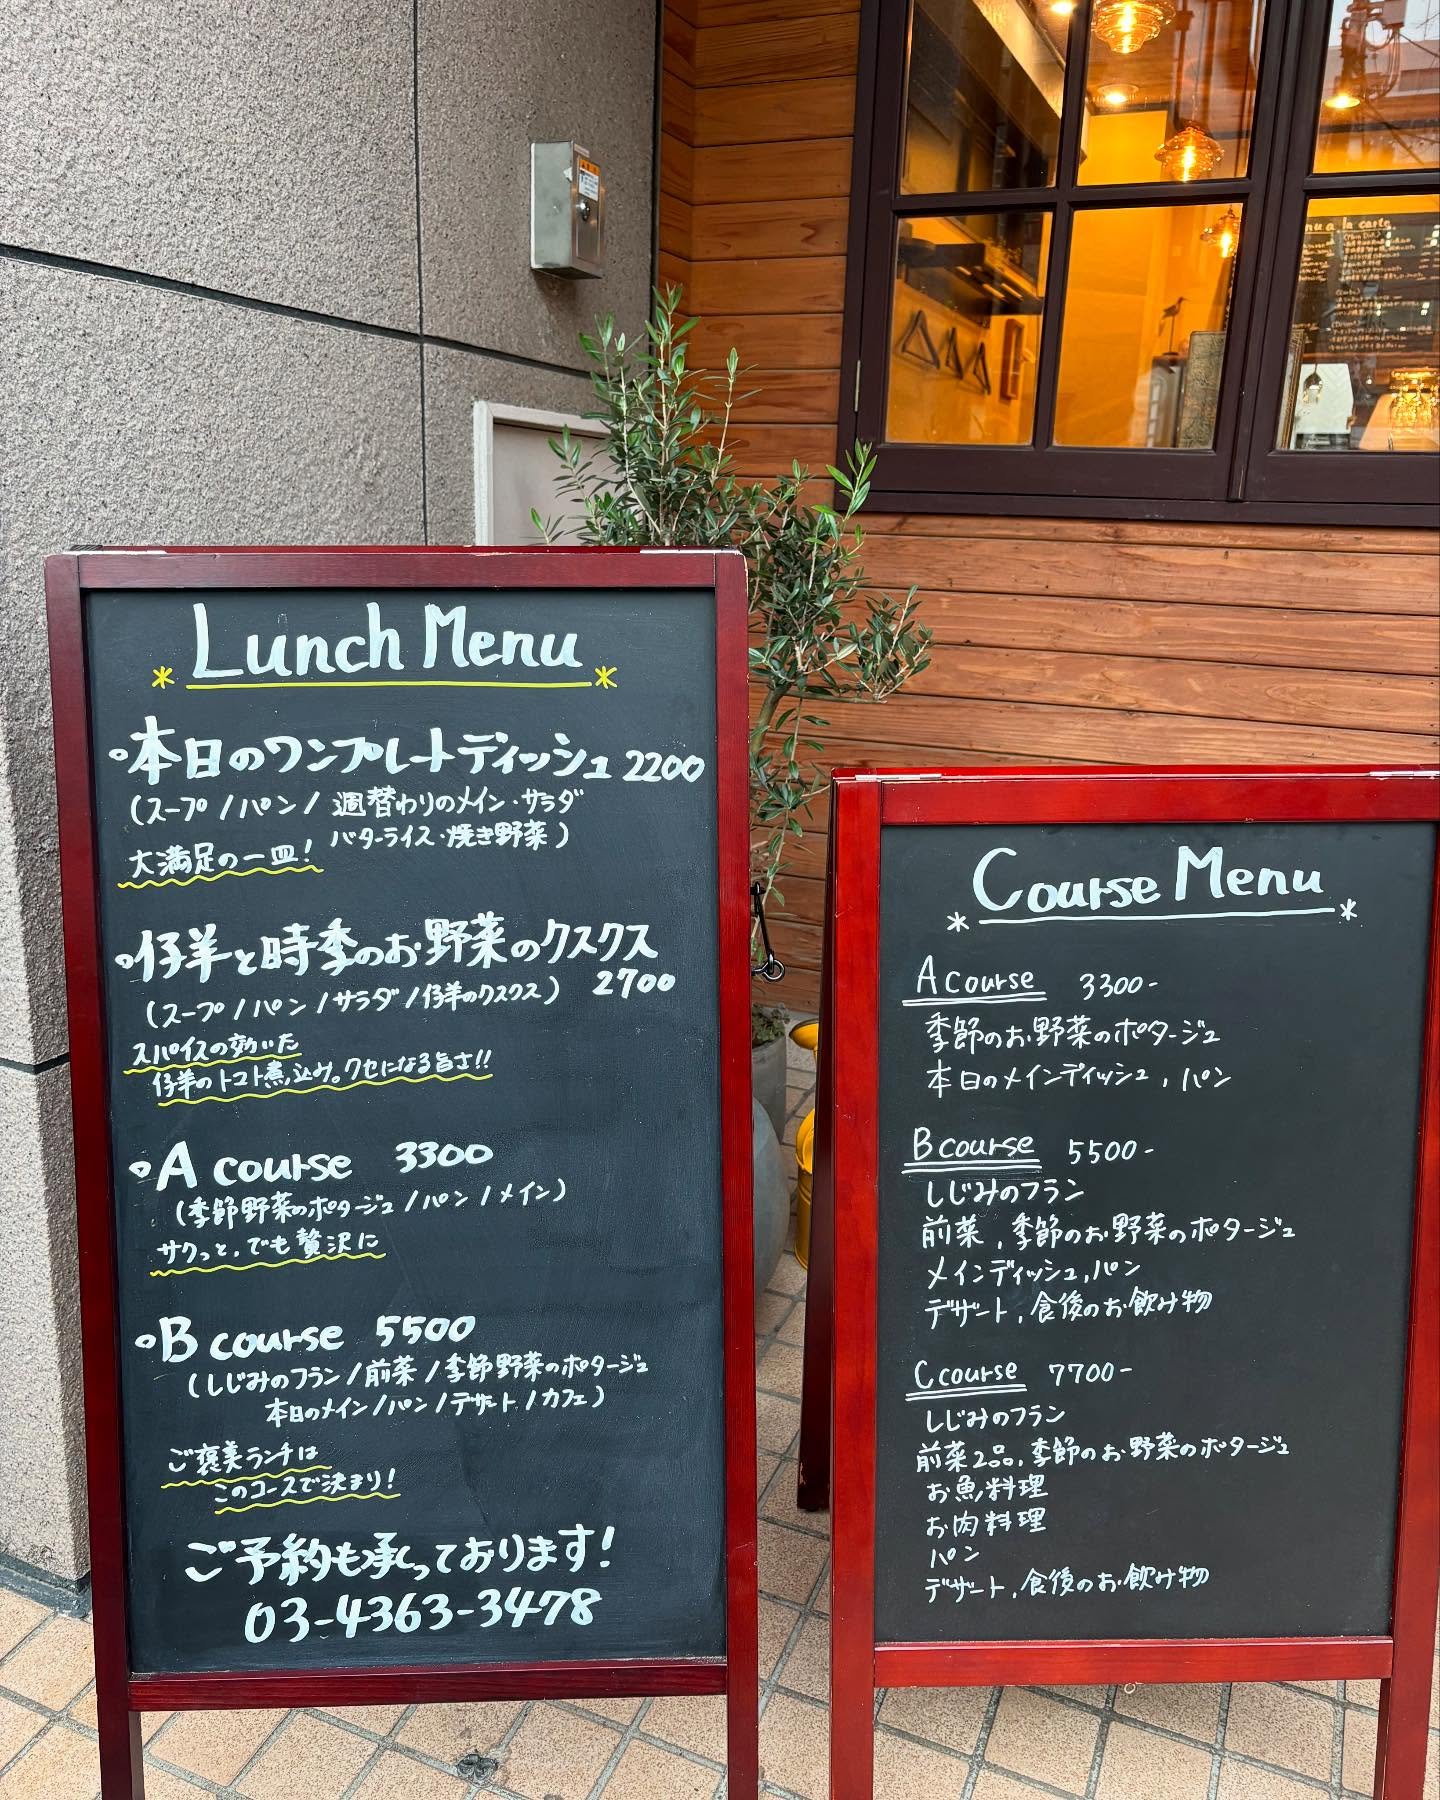 Lunch Menu
・本日のワンプレートディッシュ 2200
(スープ/パン/週替わりのメイン・サラダ
バターライス・焼き野菜)
大満足の一皿!
・仔羊と時季のお野菜のクスクス
2700
(スープ/パン/サラダ/仔羊のクスクス)
スパイスの効いた
仔羊のトマト煮込み。クセになる旨さ!!
・A course 3300
(季節野菜のポタージュ/パン/メイン)
サクっと、でも贅沢に
・B course 5500
(しじみのフラン/前菜/季節野菜のポタージュ
本日のメイン/パン/デザート/カフェ)
ご褒美ランチは
このコースで決まり!
ご予約も承っております!
03-4363-3478
Course Menu
A course 3300-
季節のお野菜のポタージュ
本日のメインディッシュ, パン
B course 5500-
しじみのフラン
前菜, 季節のお野菜のポタージュ
メインディッシュ, パン
デザート, 食後のお飲み物
C course 7700-
しじみのフラン
前菜2品, 季節のお野菜のポタージュ
お魚料理
お肉料理
パン
デザート, 食後のお飲み物